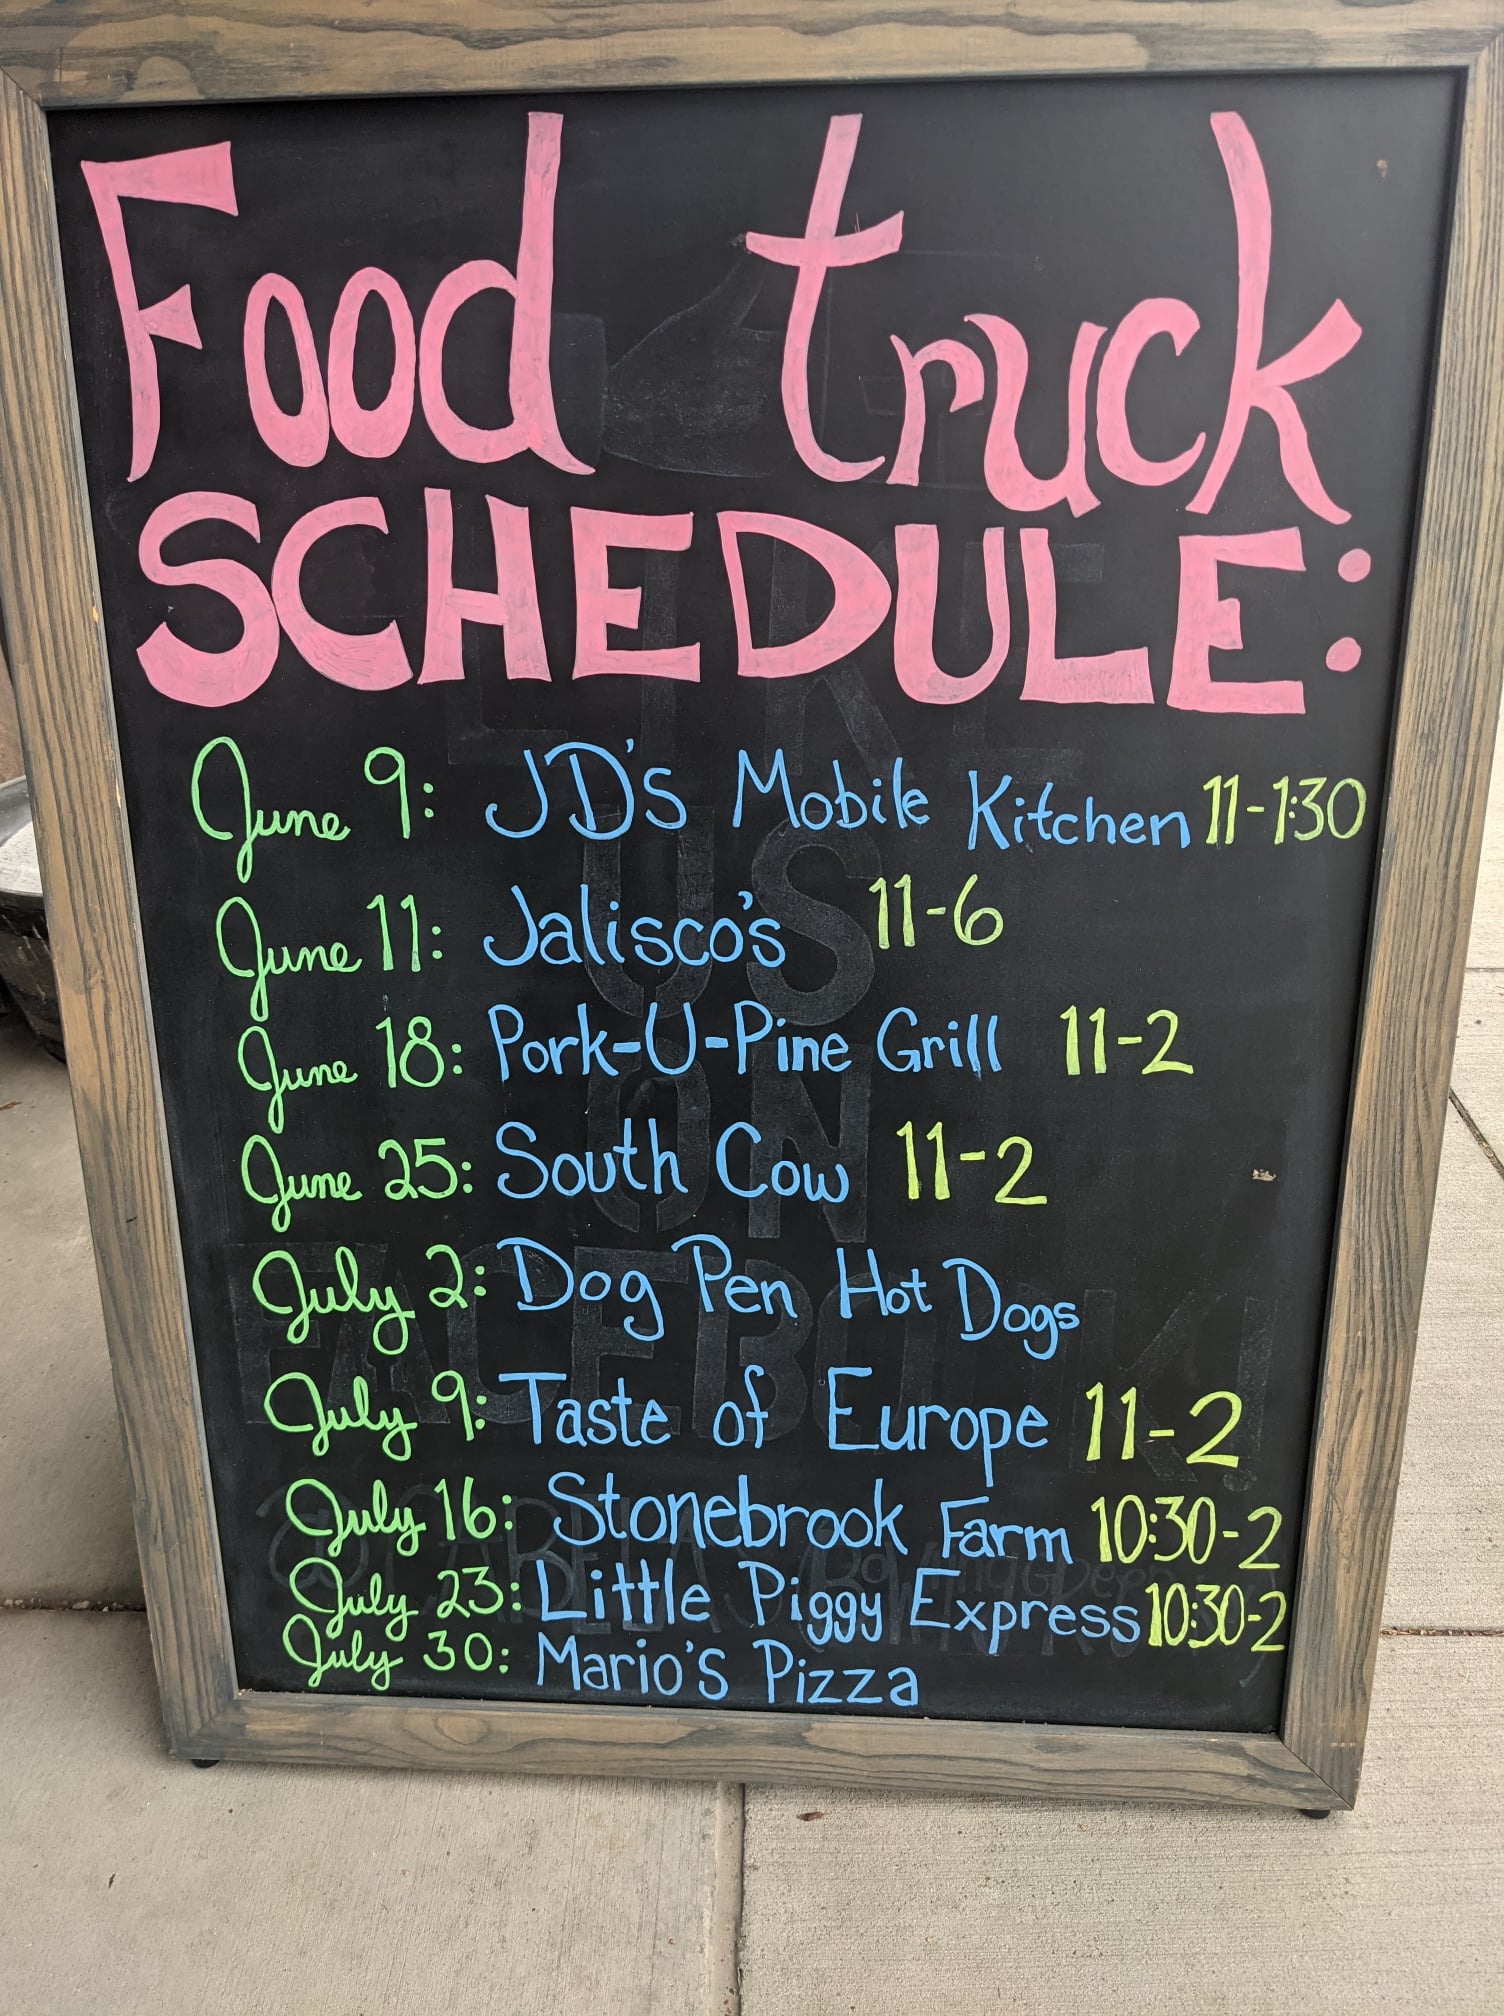 Food truck
SCHEDULE:
June 9: JD's Mobile Kitchen 11-1:30
June 11: Jalisco's 11-6
June 18: Pork-U-Pine Grill 11-2
June 25: South Cow 11-2
July 2: Dog Pen Hot Dogs
July 9: Taste of Europe 11-2
July 16: Stonebrook Farm 10:30-2
July 23: Little Piggy Express 10:30-2
July 30: Mario's Pizza
LIKE
US
ON
FACEBOOK!